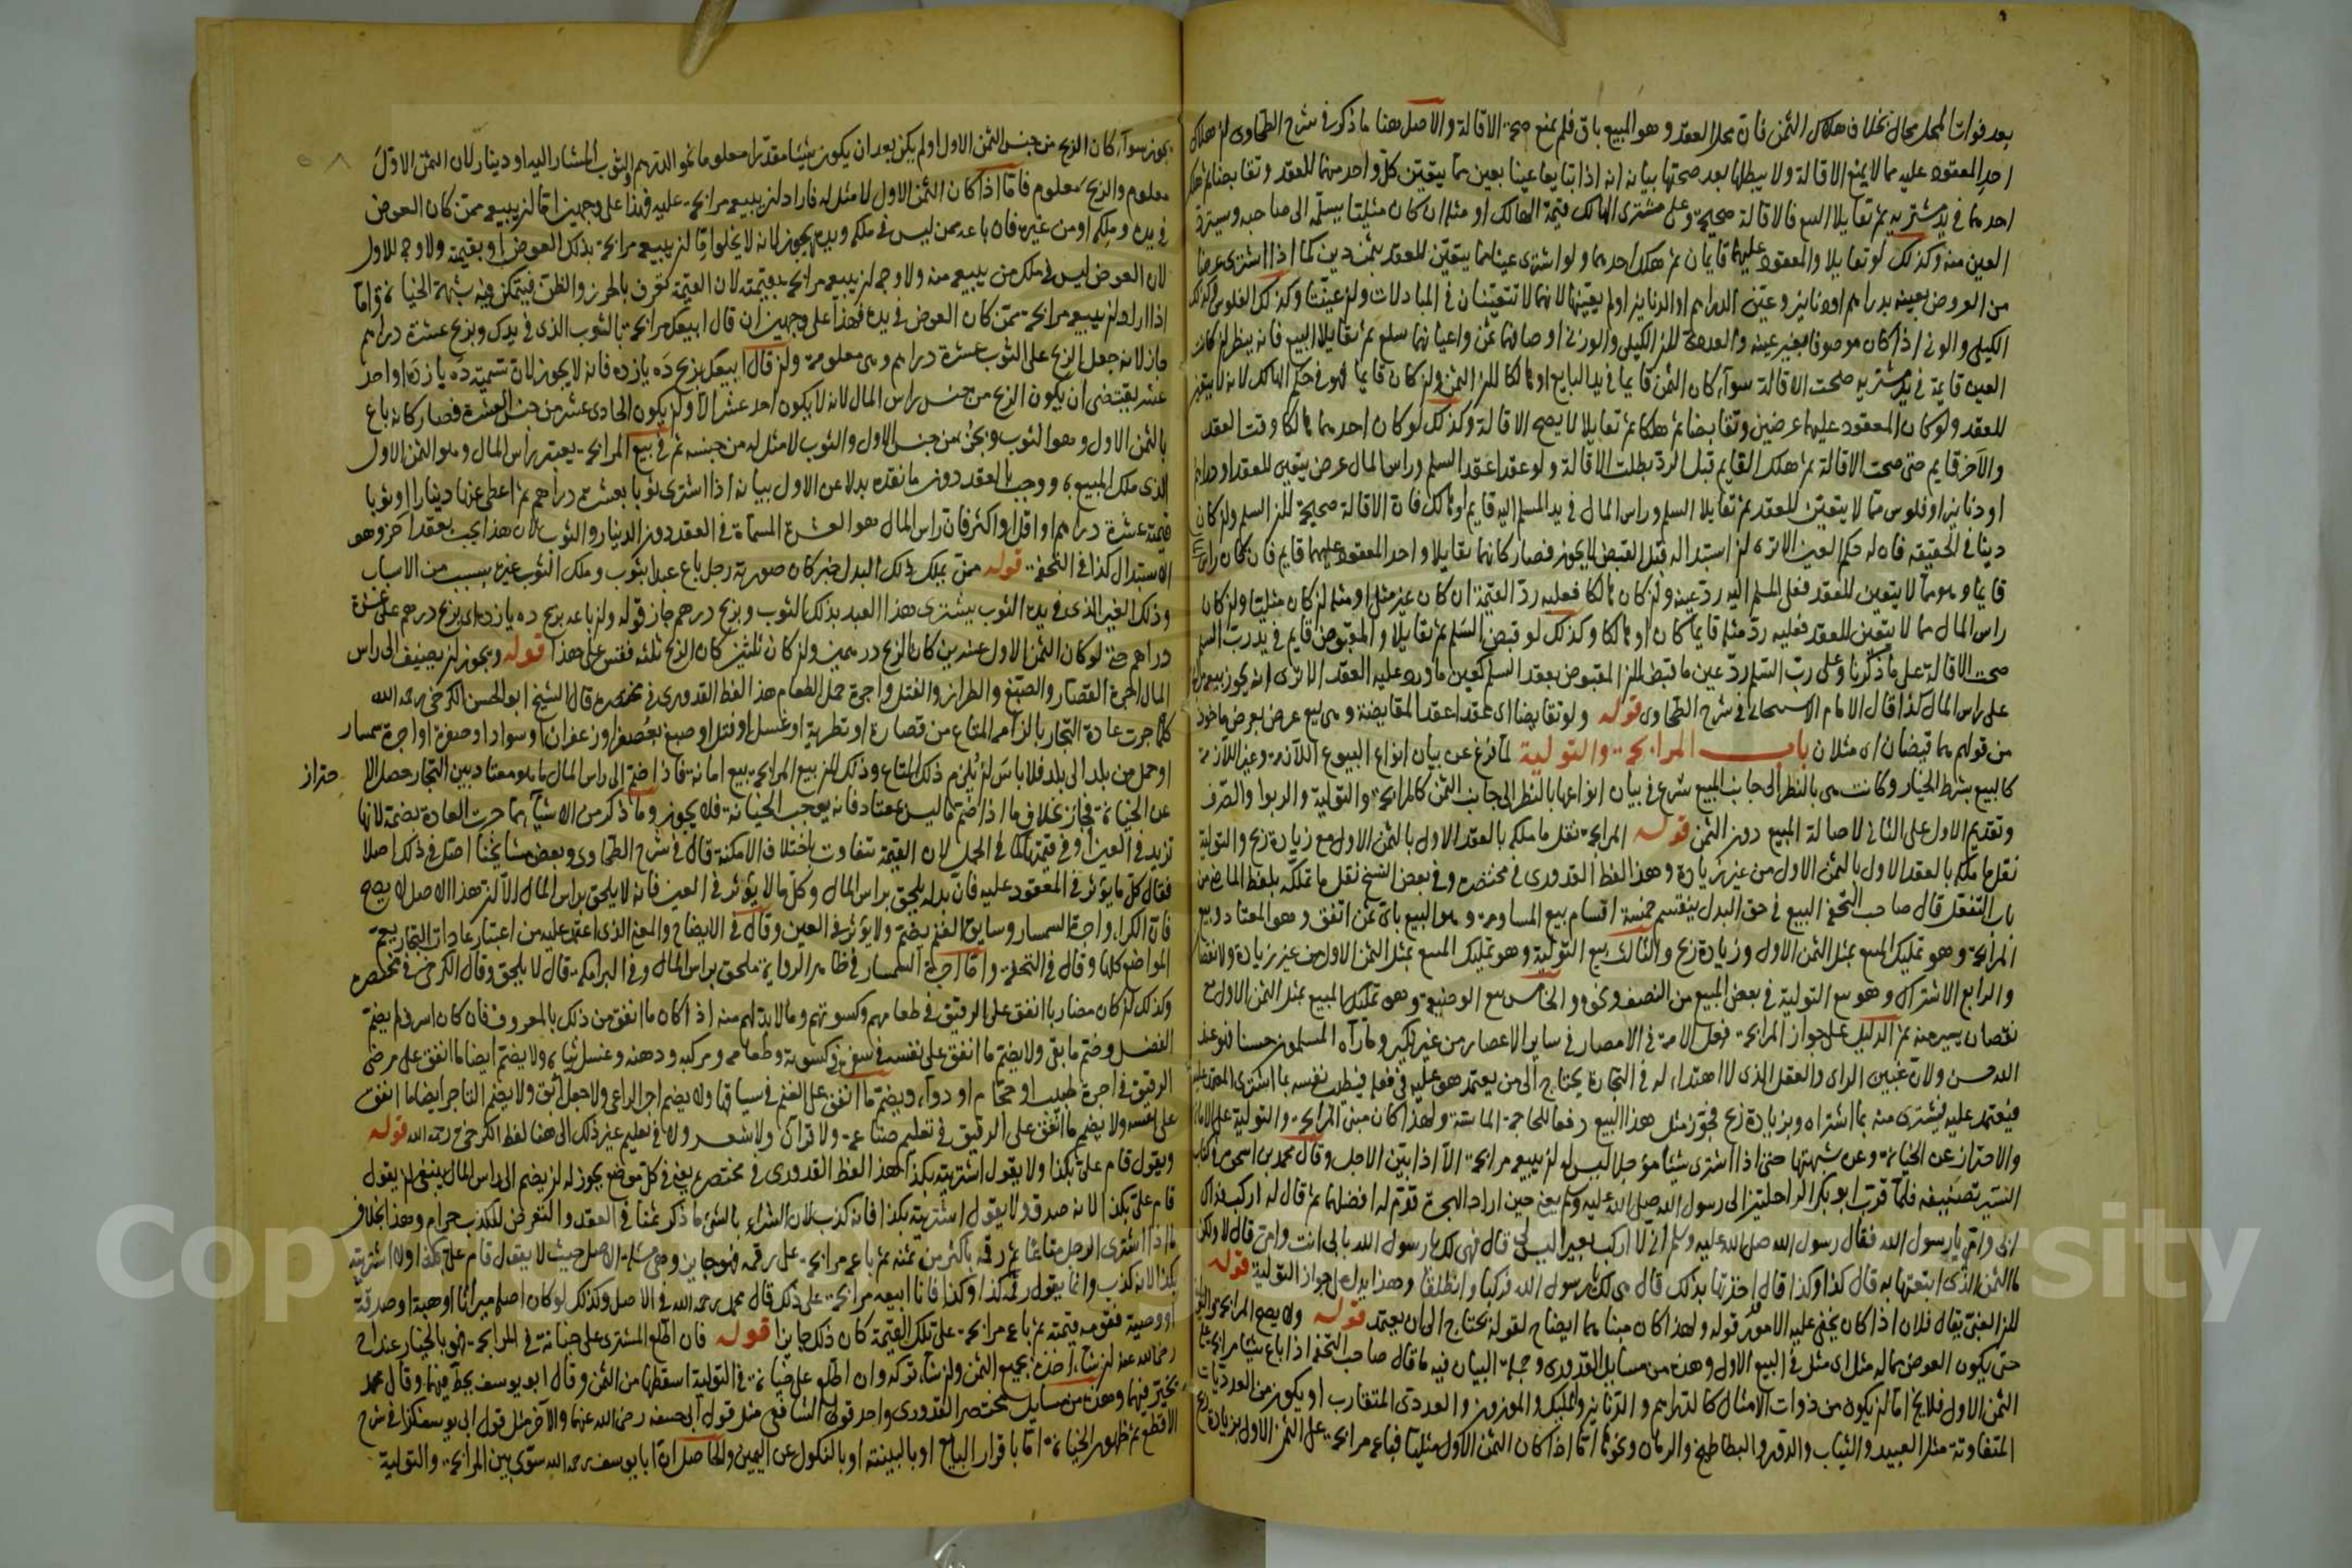 بعد فوات المحل محال بخلاف هلاك الثمن فان محل العقد وهو المبيع باق فلم يمنع صحة الاقالة والاصل هنا ما ذكر في شرح الطحاوى ان هلاك
احد المعقود عليهما لا يمنع الاقالة ولا يبطلها بعد صحتها بيانه انه اذا تبايعا عينا بعين مما يتعين كل واحد منهما للعقد وتقابضا ثم هلك
احدهما في يد مشتريه ثم تقايلا البيع فالاقالة صحيحة وعلى مشترى الهالك قيمة الهالك او مثله ان كان مثليا يسلمه الى صاحبه ويسترد
العين منه وكذلك لو تقايلا والمعقود عليهما قايمان ثم هلك احدهما ولو اشترى عينا مما يتعين للعقد بثمن دين كما اذا اشترى عرضا
من العروض بعينه بدراهم او دنانير وعين الدراهم او الدنانير او لم يعينها لانهما لا تتعينان في المبادلات وان عينتا وكذلك الفلوس وكذلك
الكيلى والوزنى اذا كان موصوفا بغير عينه
العين قايمة في يد مشتريه صحت الاقالة سواء كان الثمن قايما في يد البايع او هالكا لان الثمن وان كان قايما فهو في حكم الهالك لانه لا يتعين
للعقد ولو كان المعقود عليهما عرضين وتقابضا ثم هلكا ثم تقايلا لا يصح الاقالة وكذلك لو كان احدهما هالكا وقت العقد
والآخر قايم حتى صحت الاقالة ثم هلك القايم قبل الرد بطلت الاقالة ولو عقدا عقد السلم وراس المال عرض يتعين للعقد او دراهم
او دنانير او فلوس مما لا يتعين للعقد ثم تقايلا السلم وراس المال في يد المسلم اليه قايم او هالك فان الاقالة صحيحة لان السلم وان كان
دينا في الحقيقة فان له حكم العين الا ترى ان استبداله قبل القبض لا يجوز فصار كانهما تقايلا واحد المعقود عليهما قايم فان كان راس المال
قايما وهو مما لا يتعين للعقد فعلى المسلم اليه رد عينه وان كان هالكا فعليه رد القيمة ان كان غير مثلى او مثله ان كان مثليا وان كان
راس المال مما لا يتعين للعقد فعليه رد مثله قايما كان او هالكا وكذلك لو قبض السلم ثم تقايلا والمقبوض قايم في يد رب السلم
صحت الاقالة على ما ذكرنا وعلى رب السلم رد عين ما قبض لان المقبوض بعقد السلم كعين ما ورد عليه العقد الا ترى انه يجوز بيعه مرابحة
على راس المال كذا قال الامام الاسبيجابى في شرح الطحاوى قوله ولو تقايضا اى عقدا عقد المقايضة وهى بيع عرض بعرض ماخوذ
من قولهم هما قيضان اى مثلان باب المرابحة والتولية لما فرغ عن بيان انواع البيوع اللازمة وغير اللازمة
كالبيع بشرط الخيار وكانت هى بالنظر الى جانب المبيع شرع في بيان انواعها بالنظر الى جانب الثمن كالمرابحة والتولية والربوا والصرف
وتقديم الاول على الثانى لاصالة المبيع دون الثمن قوله المرابحة نقل ما ملكه بالعقد الاول بالثمن الاول مع زيادة ربح والتولية
نقل ما ملكه بالعقد الاول بالثمن الاول من غير زيادة وهذا لفظ القدورى في مختصره وفي بعض النسخ نقل ما تملكه بلفظ الماضى من
باب التفعل قال صاحب التحفة البيع في حق البدل ينقسم خمسة اقسام بيع المساومة وهو البيع باى ثمن اتفق وهو المعتاد وبيع
المرابحة وهو تمليك المبيع بمثل الثمن الاول وزيادة ربح والثالث بيع التولية وهو تمليك المبيع بمثل الثمن الاول من غير زيادة ولا نقصان
والرابع الاشتراك وهو بيع التولية في بعض المبيع من النصف ونحوه والخامس بيع الوضيعة وهو تمليك المبيع بمثل الثمن الاول مع
نقصان يسير منه ثم الدليل على جواز المرابحة فعل الامة في الامصار في ساير الاعصار من غير نكير وما رآه المسلمون حسنا فهو عند
الله حسن ولان غبين الراى والعقل الذى لا اهتداء له في التجارة يحتاج الى من يعتمد هو عليه في فعله فيطلب نفسه بما اشترى المعتمد عليه
فيعتمد عليه فيشترى منه بما اشتراه وبزيادة ربح فجوز مثل هذا البيع دفعا للحاجة الماسة ولهذا كان مبنى المرابحة والتولية على الامانة
والاحتراز عن الخيانة وعن شبهتها حتى اذا اشترى شيئا مؤجلا ليس له ان يبيعه مرابحة الا اذا بين الاجل وقال محمد بن اسحق في كتاب
السير تصنيفه فلما قرب ابو بكر الراحلتين الى رسول الله صلى الله عليه وسلم يعنى حين اراد الهجرة قدم له افضلهما ثم قال له اركب فداك
ابى وامى يا رسول الله فقال رسول الله صلى الله عليه وسلم انى لا اركب بعيرا ليس لى قال فهى لك يا رسول الله بابى انت وامى قال لا ولكن
ما الثمن الذى ابتعتها به قال كذا وكذا قال اخذتها بذلك قال هى لك يا رسول الله فركبا وانطلقا وهذا يدل على جواز التولية قوله
لان الغبى يقال فلان اذا كان يخفى عليه الامور قوله ولهذا كان مبناهما ايضاح لقوله يحتاج الى ان يعتمد قوله ولا يصح المرابحة والتولية
حتى يكون العوض مما له مثل اى مثل في البيع الاول وهذه من مسايل القدورى وجملة البيان فيه ما قال صاحب التحفة اذا باع شيئا مرابحة على
الثمن الاول فلا يخ اما ان يكون من ذوات الامثال كالدراهم والدنانير والمكيل والموزون والعددى المتقارب او يكون من العدديات
المتفاوتة مثل العبيد والثياب والدور والبطاطيخ والرمان ونحوها اما اذا كان الثمن الاول مثليا فباعه مرابحة على الثمن الاول بزيادة ربح
يجوز سواء كان الربح من جنس الثمن الاول او لم يكن بعد ان يكون شيئا مقدرا معلوما نحو الدرهم والثوب المشار اليه او دينار لان الثمن الاول
معلوم والربح معلوم فاما اذا كان الثمن الاول لا مثل له فاراد ان يبيعه مرابحة عليه فهذا على وجهين اما ان يبيعه ممن كان العوض
في يده وملكه او من غيره فان باعه ممن ليس في ملكه ويده لا يجوز لانه لا يخلو اما ان يبيعه مرابحة بذلك العوض او بقيمته ولا وجه للاول
لان العوض ليس في ملك من يبيعه منه ولا وجه ان يبيعه مرابحة بقيمته لان القيمة تعرف بالحرز والظن فيتمكن فيه شبهة الخيانة واما
اذا اراد ان يبيعه مرابحة ممن كان العوض في يده فهذا على وجهين ان قال ابيعك مرابحة بالثوب الذى في يدك وبربح عشرة دراهم
جاز لانه جعل الربح على الثوب عشرة دراهم وهى معلومة وان قال ابيعك بربح ده يازده فانه لا يجوز لان تسمية ده يازده واحد
عشر يقتضى ان يكون الربح من جنس راس المال لانه لا يكون احد عشر الا وان يكون الحادى عشر من جنس العشرة فصار كانه باع
بالثمن الاول وهو الثوب وبجزء من جنس الاول والثوب لا مثل له من جنسه ثم في بيع المرابحة يعتبر راس المال وهو الثمن الاول
الذى ملك المبيع به ووجب بالعقد دون ما نقده بدلا عن الاول بيانه اذا اشترى ثوبا بعشرة دراهم ثم اعطى عنها دينارا او ثوبا
قيمته عشرة دراهم او اقل او اكثر فان راس المال هو العشرة المسماة في العقد دون الدينار والثوب لان هذا يجب بعقد آخر وهو
الاستبدال كذا في التحفة قوله ممن يملك ذلك البدل خبر كان صورته رجل باع عبدا بثوب وملك الثوب غيره بسبب من الاسباب
وذلك الغير الذى في يده الثوب يشترى هذا العبد بذلك الثوب وبربح درهم جاز قوله وان باعه بربح ده يازده اى بربح درهم على عشرة
دراهم حتى لو كان الثمن الاول عشرين كان الربح درهمين وان كان ثلثين كان الربح ثلثة فقس على هذا قوله ويجوز ان يضيف الى راس
المال اجرة القصار والصبغ والطراز والفتل واجرة حمل الطعام هذا لفظ القدورى في مختصره قال الشيخ ابو الحسن الكرخى رحمه الله
كلما جرت عادة التجار بالزامه المتاع من قصارة او تطرية او غسل او فتل او صبغ بعصفر او زعفران او سواد او صفرة او اجرة سمسار
او حمل من بلد الى بلد فلا باس ان يلزم ذلك المتاع وذلك لان بيع المرابحة بيع امانة فاذا ضم الى راس المال ما هو معتاد بين التجار حصل الا حتراز
عن الخيانة فجاز بخلاف ما اذا ضم ما ليس بمعتاد فانه يوجب الخيانة فلا يجوز وما ذكر من الاشياء مما جرت العادة بضمه لانها
تزيد في العين او في قيمتها كما في الحمل لان القيمة تتفاوت باختلاف الامكنة قال في شرح الطحاوى وبعض مشايخنا اصل في ذلك اصلا
فقال كل ما يؤثر في المعقود عليه فان بدله يلحق براس المال وكل ما لا يؤثر في العين فانه لا يلحق براس المال الا ان هذا الاصل لا يصح
فان الكراء واجرة السمسار وسايق الغنم يضم ولا يؤثر في العين وقال في الايضاح والمعنى الذى اعتمد عليه من اعتبار عادات التجار يعم
المواضع كلها وقال في التحفة واما اجرة السمسار في ظاهر الرواية ملحق براس المال وفي البرامكة قال لا يلحق وقال الكرخى في مختصره
وكذلك ان كان مضاربا انفق على الرقيق في طعامهم وكسوتهم وما لا بد لهم منه اذا كان ما انفق من ذلك بالمعروف فان كان اسرف لم يضم
الفضل وضم ما بقى ولا يضم ما انفق على نفسه في سفره في كسوته وطعامه ومركبه ودهنه وغسل ثيابه ولا يضم ايضا ما انفق على مرضى
الرقيق في اجرة طبيب او حجام او دواء ويضم ما انفق على الغنم في سياقها ولا يضم اجر الراعى ولا جعل الآبق ولا يضم التاجر ايضا ما انفق
على نفسه ولا يضم ما انفق على الرقيق في تعليم صناعة ولا قرآن ولا شعر ولا في تعليم غير ذلك الى هنا لفظ الكرخى رحمه الله قوله
ويقول قام على بكذا ولا يقول اشتريته بكذا هذا لفظ القدورى في مختصره يعنى في كل موضع يجوز له ان يضم الى راس المال ينبغى ان يقول
قام على بكذا لانه صدق ولا يقول اشتريته بكذا فانه كذب لان الشراء بالشئ ما ذكر ثمنا في العقد والتعرض للكذب حرام وهذا بخلاف
ما اذا اشترى الرجل متاعا ثم رقمه باكثر من ثمنه ثم باعه مرابحة على رقمه فهو جايز وهى مسئلة الاصل حيث لا يقول قام على بكذا ولا اشتريته
بكذا لانه كذب وانما يقول رقمه كذا وكذا فانا ابيعه مرابحة على ذلك قال محمد رحمه الله في الاصل وكذلك لو كان اصله ميراثا او هبة او صدقة
او وصية فقومه قيمته ثم باعه مرابحة على تلك القيمة كان ذلك جايزا قوله فان اطلع المشترى على خيانة في المرابحة فهو بالخيار عند ابى ح
رضى الله عنه ان شاء اخذه بجميع الثمن وان شاء تركه وان اطلع على خيانة في التولية اسقطها من الثمن وقال ابو يوسف يحط فيهما وقال محمد
يخير فيهما وهذه من مسايل مختصر القدورى واحد قولى الشافعى مثل قول ابى حنيفة رضى الله عنهما والآخر مثل قول ابى يوسف كذا في شرح
الاقطع ثم ظهور الخيانة اما باقرار البايع او بالبينة او بالنكول عن اليمين والحاصل ان ابا يوسف رحمه الله سوى بين المرابحة والتولية